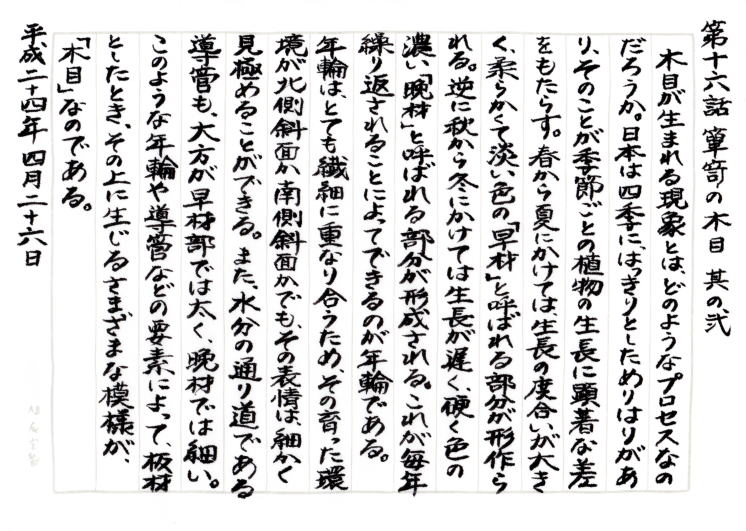 第十六話 箪笥の木目 其の弐
木目が生まれる現象とは、どのようなプロセスなの
だろうか。日本は四季に、はっきりとしためりはりがあ
り、そのことが季節ごとの植物の生長に顕著な差
をもたらす。春から夏にかけては、生長の度合いが大き
く、柔らかくて淡い色の「早材」と呼ばれる部分が形作ら
れる。逆に秋から冬にかけては生長が遅く、硬く色の
濃い「晩材」と呼ばれる部分が形成される。これが毎年
繰り返されることによってできるのが年輪である。
年輪は、とても繊細に重なり合うため、その育った環
境が北側斜面か南側斜面かでも、その表情は、細かく
見極めることができる。また、水分の通り道である
導管も、大方が早材部では太く、晩材では細い。
このような年輪や導管などの要素によって、板材
としたとき、その上に生じるさまざまな模様が、
「木目」なのである。
平成二十四年 四月二十六日